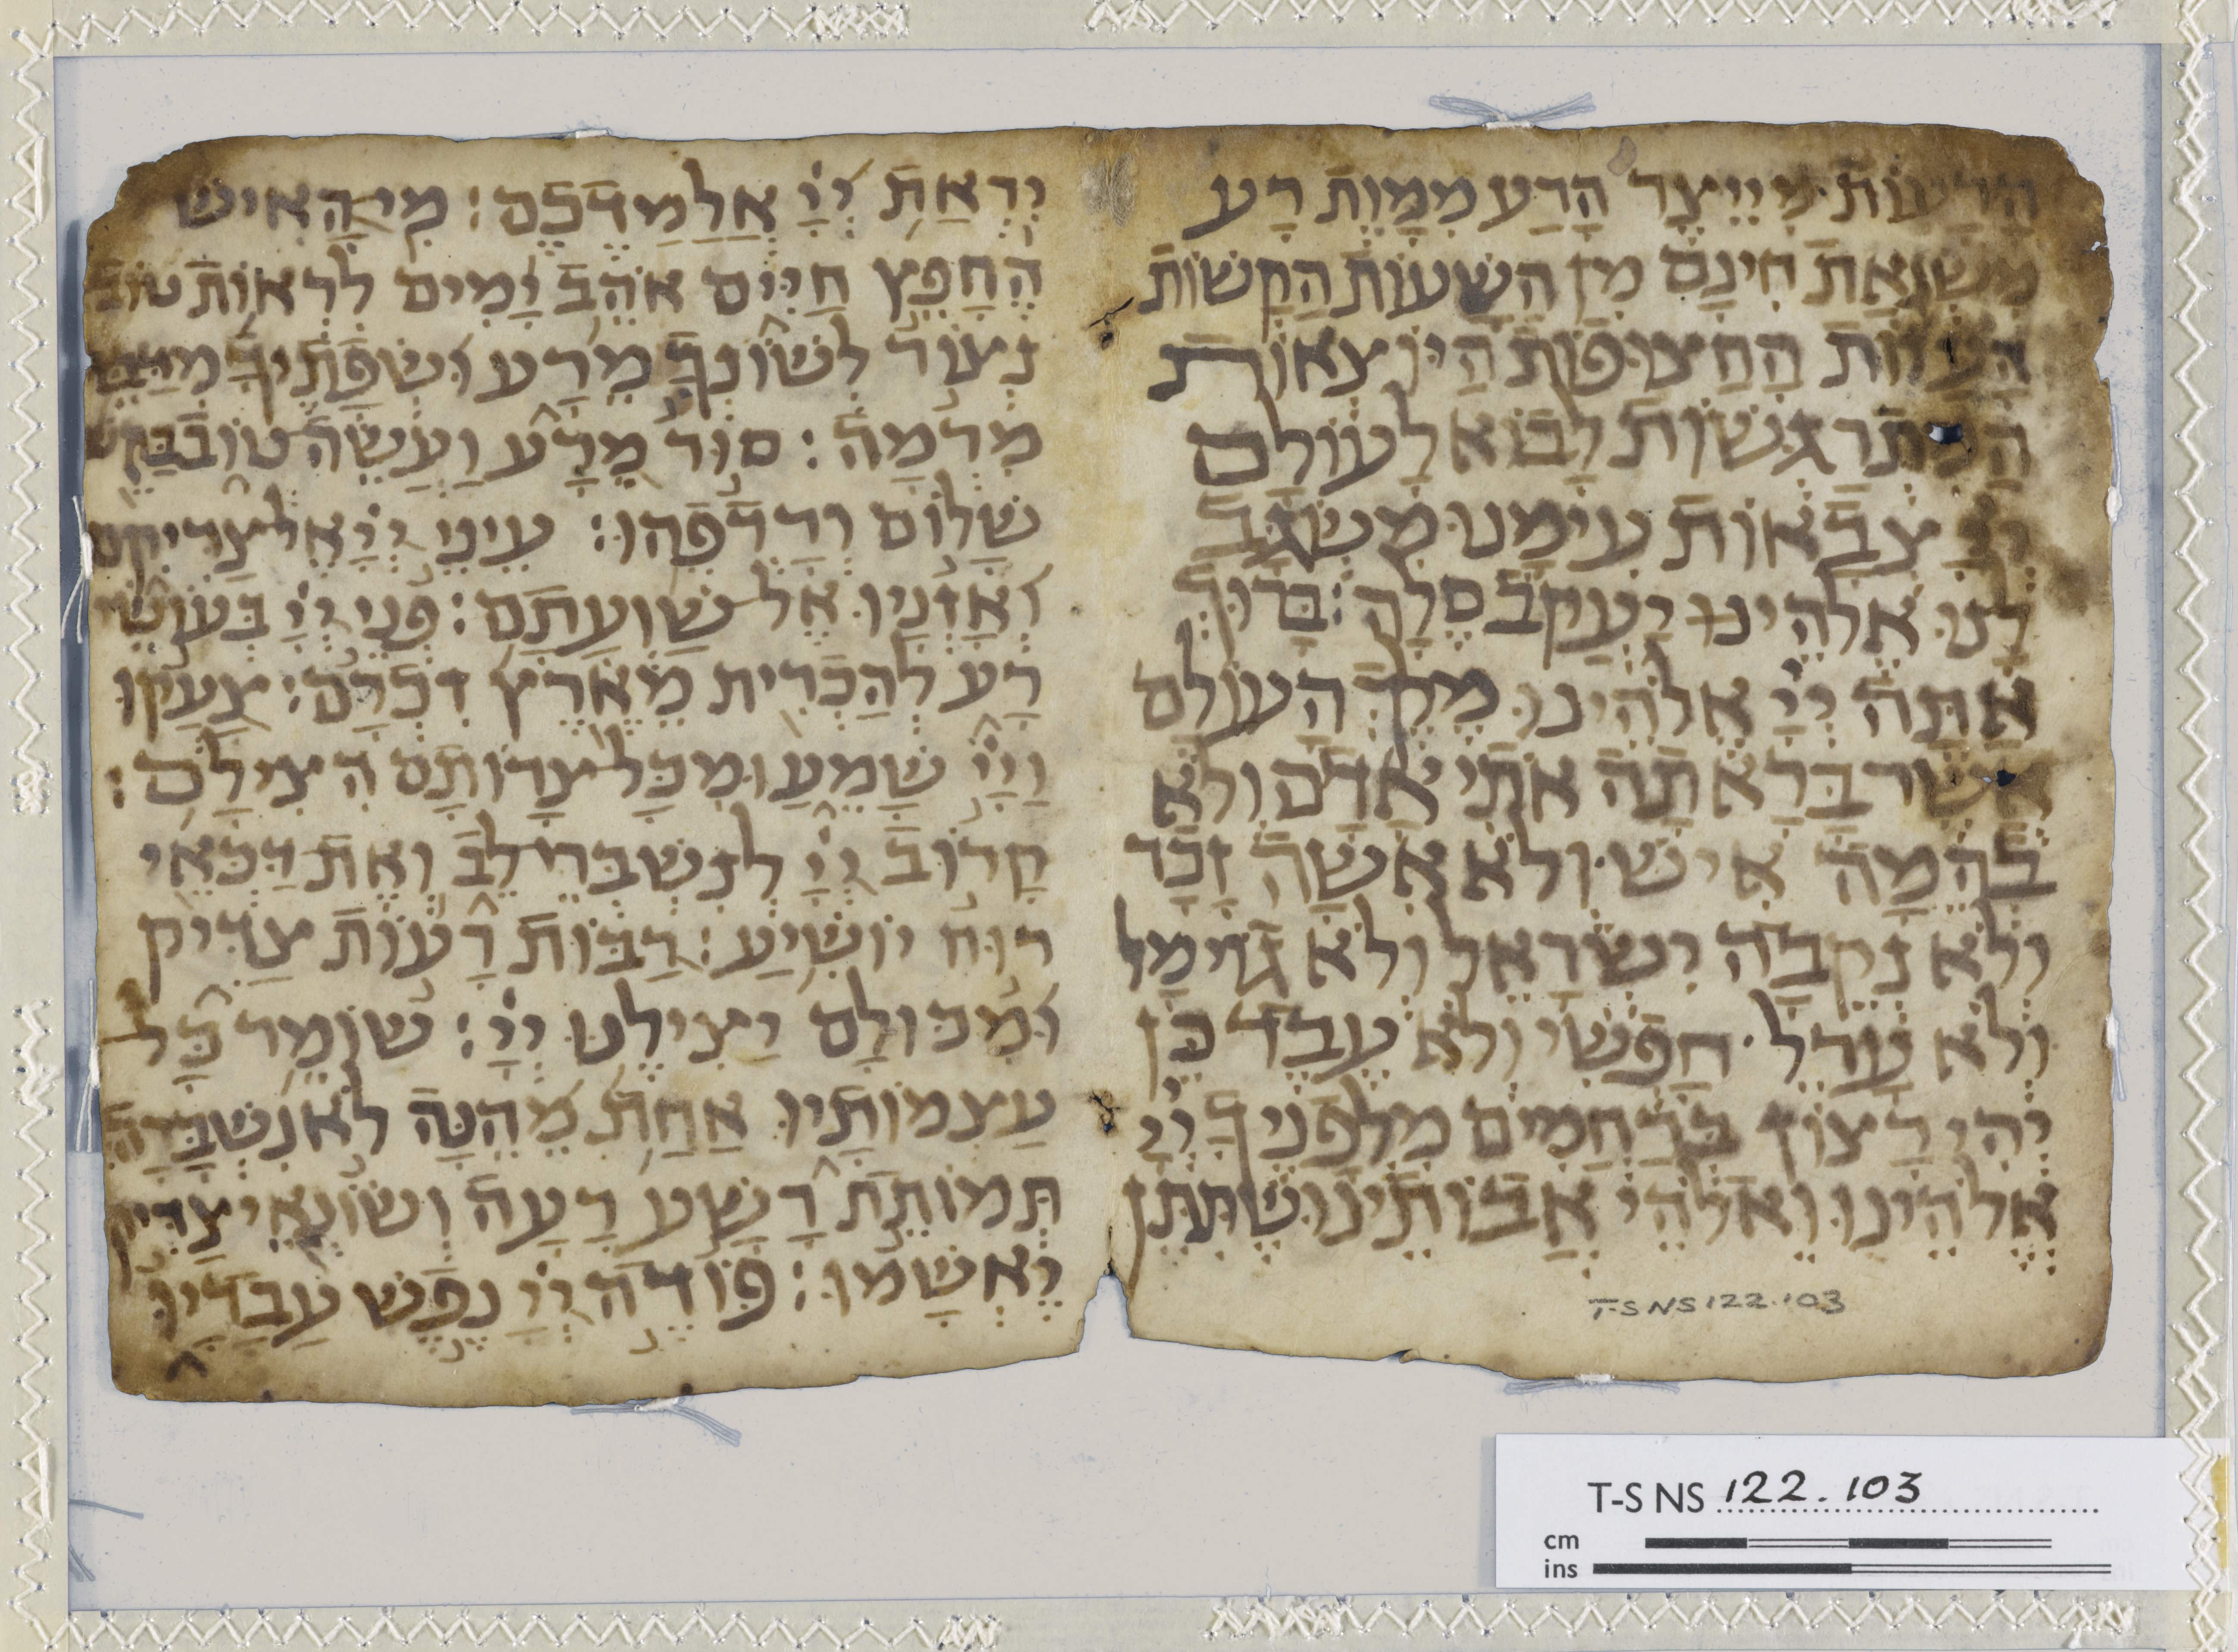 הָרָעוֹת מִיֵיצֶר הָרַע מִמָוֶת רָע
מִשִנְאַת חִינָם מִן הַשָעוֹת הַקָשׁוֹת
הָעַזוֹת הַחֲצוּפוֹת הַיוֹצְאוֹת
הַמִתְרַגְשׁוֹת לָבוֹא לָעוֹלָם
יְיָ צְבָאוֹת עִימָנוּ מִשְׂגָב
לָנוּ אֱלֹהֵינוּ יַעֲקֹב סֶלָה׃ בָּרוּךְ
אַתָּה יְיָ אֱלֹהֵינוּ מֶלֶךְ הָעוֹלָם
אֲשֶׁר בְּרָאתָה אֹתִי אָדָם וְלֹא
בְּהֵמָה אִישׁ וְלֹא אִשָׁה זָכָר
וְלֹא נְקֵבָה יִשְׂרָאֵל וְלֹא גוֹי מָל
וְלֹא עָרֵל חָפְשִׁי וְלֹא עֶבֶד כֵּן
יְהִי רָצוֹן בְּרַחֲמִים מִלְפָנֶיךָ יְיָ
אֱלֹהֵינוּ וֵאלֹהֵי אֲבוֹתֵינוּ שֶׁתִתֵּן
T-S NS 122.103
יִרְאַת יְיָ אֲלַמֶדְכֶם׃ מִי הָאִישׁ
הֶחָפֵץ חַיִּים אֹהֵב יָמִים לִרְאוֹת טוֹב
נְצוֹר לְשׁוֹנְךָ מֵרָע וּשְׂפָתֶיךָ מִדַּבֵּר
מִרְמָה׃ סוּר מֵרָע וַעֲשֵׂה טוֹב בַּקֵּשׁ
שָׁלוֹם וְרָדְפֵהוּ׃ עֵינֵי יְיָ אֶל צַדִיקִם
וְאָזְנָיו אֶל שַׁוְעָתָם׃ פְּנֵי יְיָ בְּעוֹשֵׂי
רָע לְהַכְרִית מֵאֶרֶץ זִכְרָם׃ צָעֲקוּ
וַיְיָ שָׁמֵעַ וּמִכָּל צָרוֹתָם הִצִילָם׃
קָרוֹב יְיָ לְנִשְׁבְּרֵי לֵב וְאֶת דַּכְּאֵי
רוּחַ יוֹשִׁיעַ׃ רַבּוֹת רָעוֹת צַדִּיק
וּמִכּוּלָם יַצִילֶנּוּ יְיָ׃ שׁוֹמֵר כָּל
עַצְמוֹתָיו אַחַת מֵהֵנָּה לֹא נִשְׁבָּרָה
תְּמוֹתֵת רָשָׁע רָעָה וְשׂוֹנְאֵי צַדִּיק
יֶאְשָׁמוּ׃ פּוֹדֶה יְיָ נֶפֶשׁ עֲבָדָיו
T-S NS 122.103
cm
ins